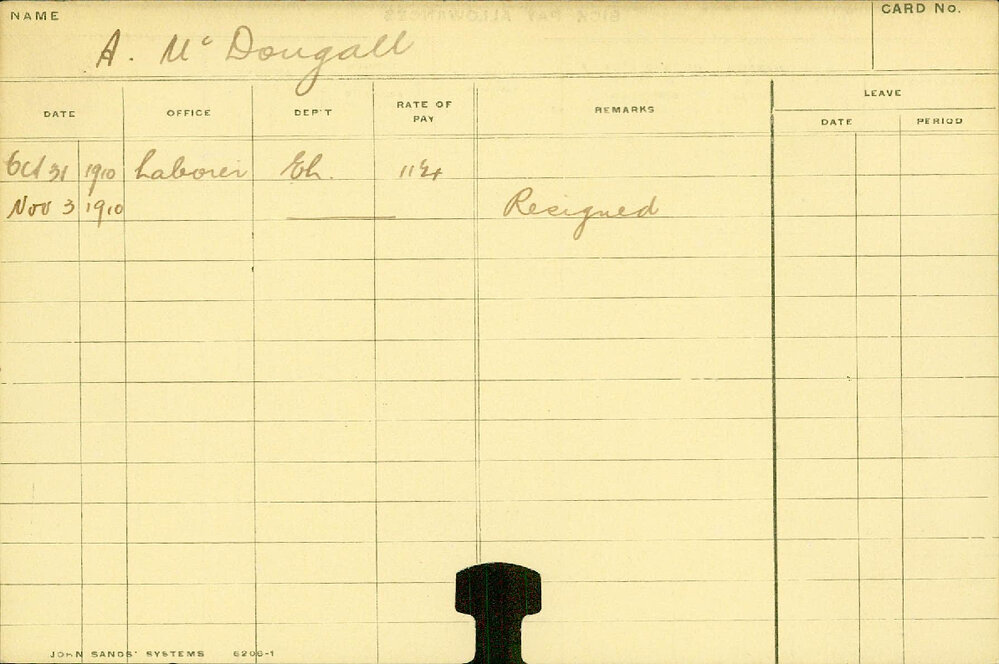 NAME
A. McDougall
CARD No.
DATE OFFICE DEP'T RATE OF PAY REMARKS LEAVE
DATE PERIOD
Oct 31 1910 Laborer Eh.
Nov 3 1910 Resigned
JOHN SANDS' SYSTEMS 6206-1